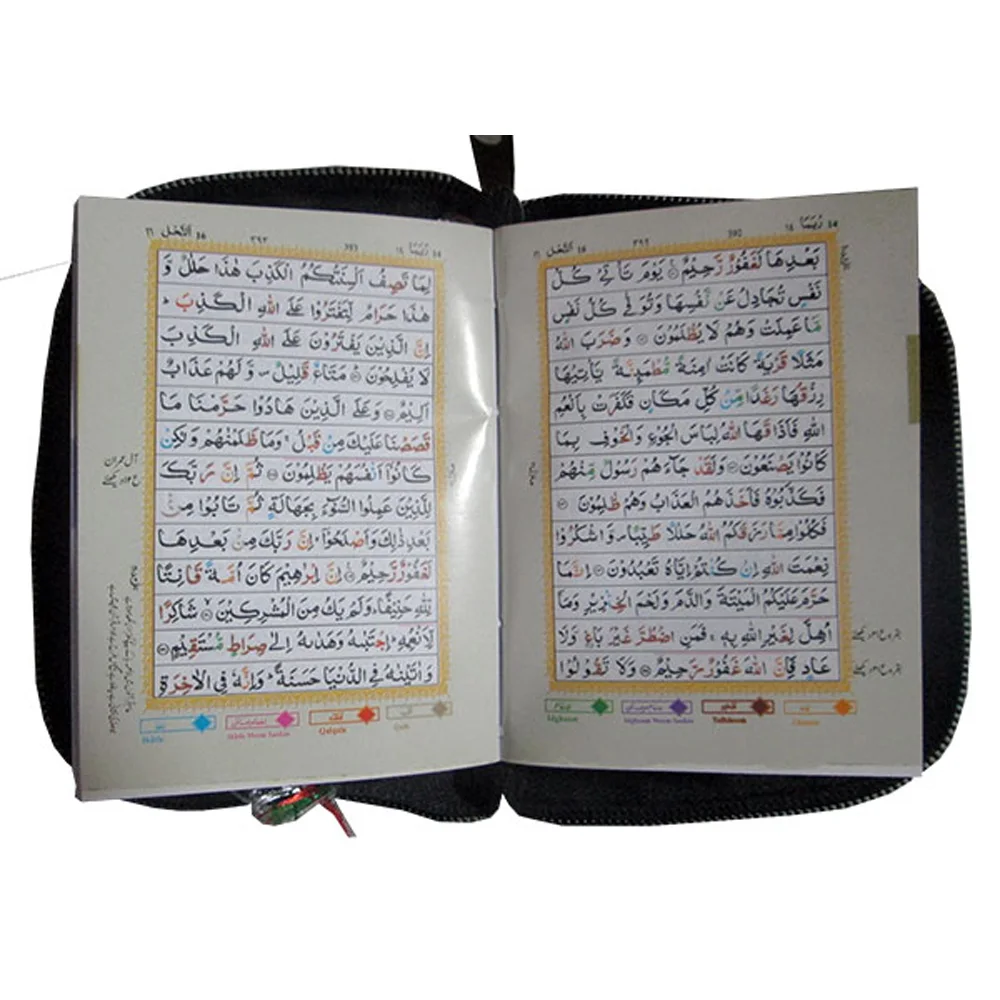 ١٦ النحل 16 ٣٩٢ 392 ١٤ ربما 14
بَعْدِهَا لَغَفُوْرٌ رَّحِيْمٌ ۝ يَوْمَ تَاْتِيْ كُلُّ
نَفْسٍ تُجَادِلُ عَنْ نَّفْسِهَا وَتُوَفّٰى كُلُّ نَفْسٍ
مَّا عَمِلَتْ وَهُمْ لَا يُظْلَمُوْنَ ۝ وَضَرَبَ اللّٰهُ
مَثَلًا قَرْيَةً كَانَتْ اٰمِنَةً مُّطْمَئِنَّةً يَّاْتِيْهَا
رِزْقُهَا رَغَدًا مِّنْ كُلِّ مَكَانٍ فَكَفَرَتْ بِاَنْعُمِ
اللّٰهِ فَاَذَاقَهَا اللّٰهُ لِبَاسَ الْجُوْعِ وَالْخَوْفِ بِمَا
كَانُوْا يَصْنَعُوْنَ ۝ وَلَقَدْ جَآءَهُمْ رَسُوْلٌ مِّنْهُمْ
فَكَذَّبُوْهُ فَاَخَذَهُمُ الْعَذَابُ وَهُمْ ظٰلِمُوْنَ ۝
فَكُلُوْا مِمَّا رَزَقَكُمُ اللّٰهُ حَلٰلًا طَيِّبًا ۪ وَّاشْكُرُوْا
نِعْمَتَ اللّٰهِ اِنْ كُنْتُمْ اِيَّاهُ تَعْبُدُوْنَ ۝ اِنَّمَا
حَرَّمَ عَلَيْكُمُ الْمَيْتَةَ وَالدَّمَ وَلَحْمَ الْخِنْزِيْرِ وَمَآ
اُهِلَّ لِغَيْرِ اللّٰهِ بِهٖ ۚ فَمَنِ اضْطُرَّ غَيْرَ بَاغٍ وَّلَا
عَادٍ فَاِنَّ اللّٰهَ غَفُوْرٌ رَّحِيْمٌ ۝ وَلَا تَقُوْلُوْا
Idgham Idgham Meem Saakin
١٦ النحل 16 ٣٩٣ 393 ١٤ ربما 14
لِمَا تَصِفُ اَلْسِنَتُكُمُ الْكَذِبَ هٰذَا حَلٰلٌ وَّ
هٰذَا حَرَامٌ لِّتَفْتَرُوْا عَلَى اللّٰهِ الْكَذِبَ ۚ
اِنَّ الَّذِيْنَ يَفْتَرُوْنَ عَلَى اللّٰهِ الْكَذِبَ
لَا يُفْلِحُوْنَ ۝ مَتَاعٌ قَلِيْلٌ ۪ وَّلَهُمْ عَذَابٌ
اَلِيْمٌ ۝ وَعَلَى الَّذِيْنَ هَادُوْا حَرَّمْنَا مَا
قَصَصْنَا عَلَيْكَ مِنْ قَبْلُ ۚ وَمَا ظَلَمْنٰهُمْ وَلٰكِنْ
كَانُوْٓا اَنْفُسَهُمْ يَظْلِمُوْنَ ۝ ثُمَّ اِنَّ رَبَّكَ
لِلَّذِيْنَ عَمِلُوا السُّوْٓءَ بِجَهَالَةٍ ثُمَّ تَابُوْا مِنْۢ
بَعْدِ ذٰلِكَ وَاَصْلَحُوْٓا ۙ اِنَّ رَبَّكَ مِنْۢ بَعْدِهَا
لَغَفُوْرٌ رَّحِيْمٌ ۝ اِنَّ اِبْرٰهِيْمَ كَانَ اُمَّةً قَانِتًا
لِّلّٰهِ حَنِيْفًا ۭ وَلَمْ يَكُ مِنَ الْمُشْرِكِيْنَ ۝ شَاكِرًا
لِّاَنْعُمِهٖ ۭ اِجْتَبٰىهُ وَهَدٰىهُ اِلٰى صِرَاطٍ مُّسْتَقِيْمٍ ۝
وَاٰتَيْنٰهُ فِي الدُّنْيَا حَسَنَةً ۭ وَاِنَّهٗ فِي الْاٰخِرَةِ
Ikhfa Meem Saakin Qalqala Qalb